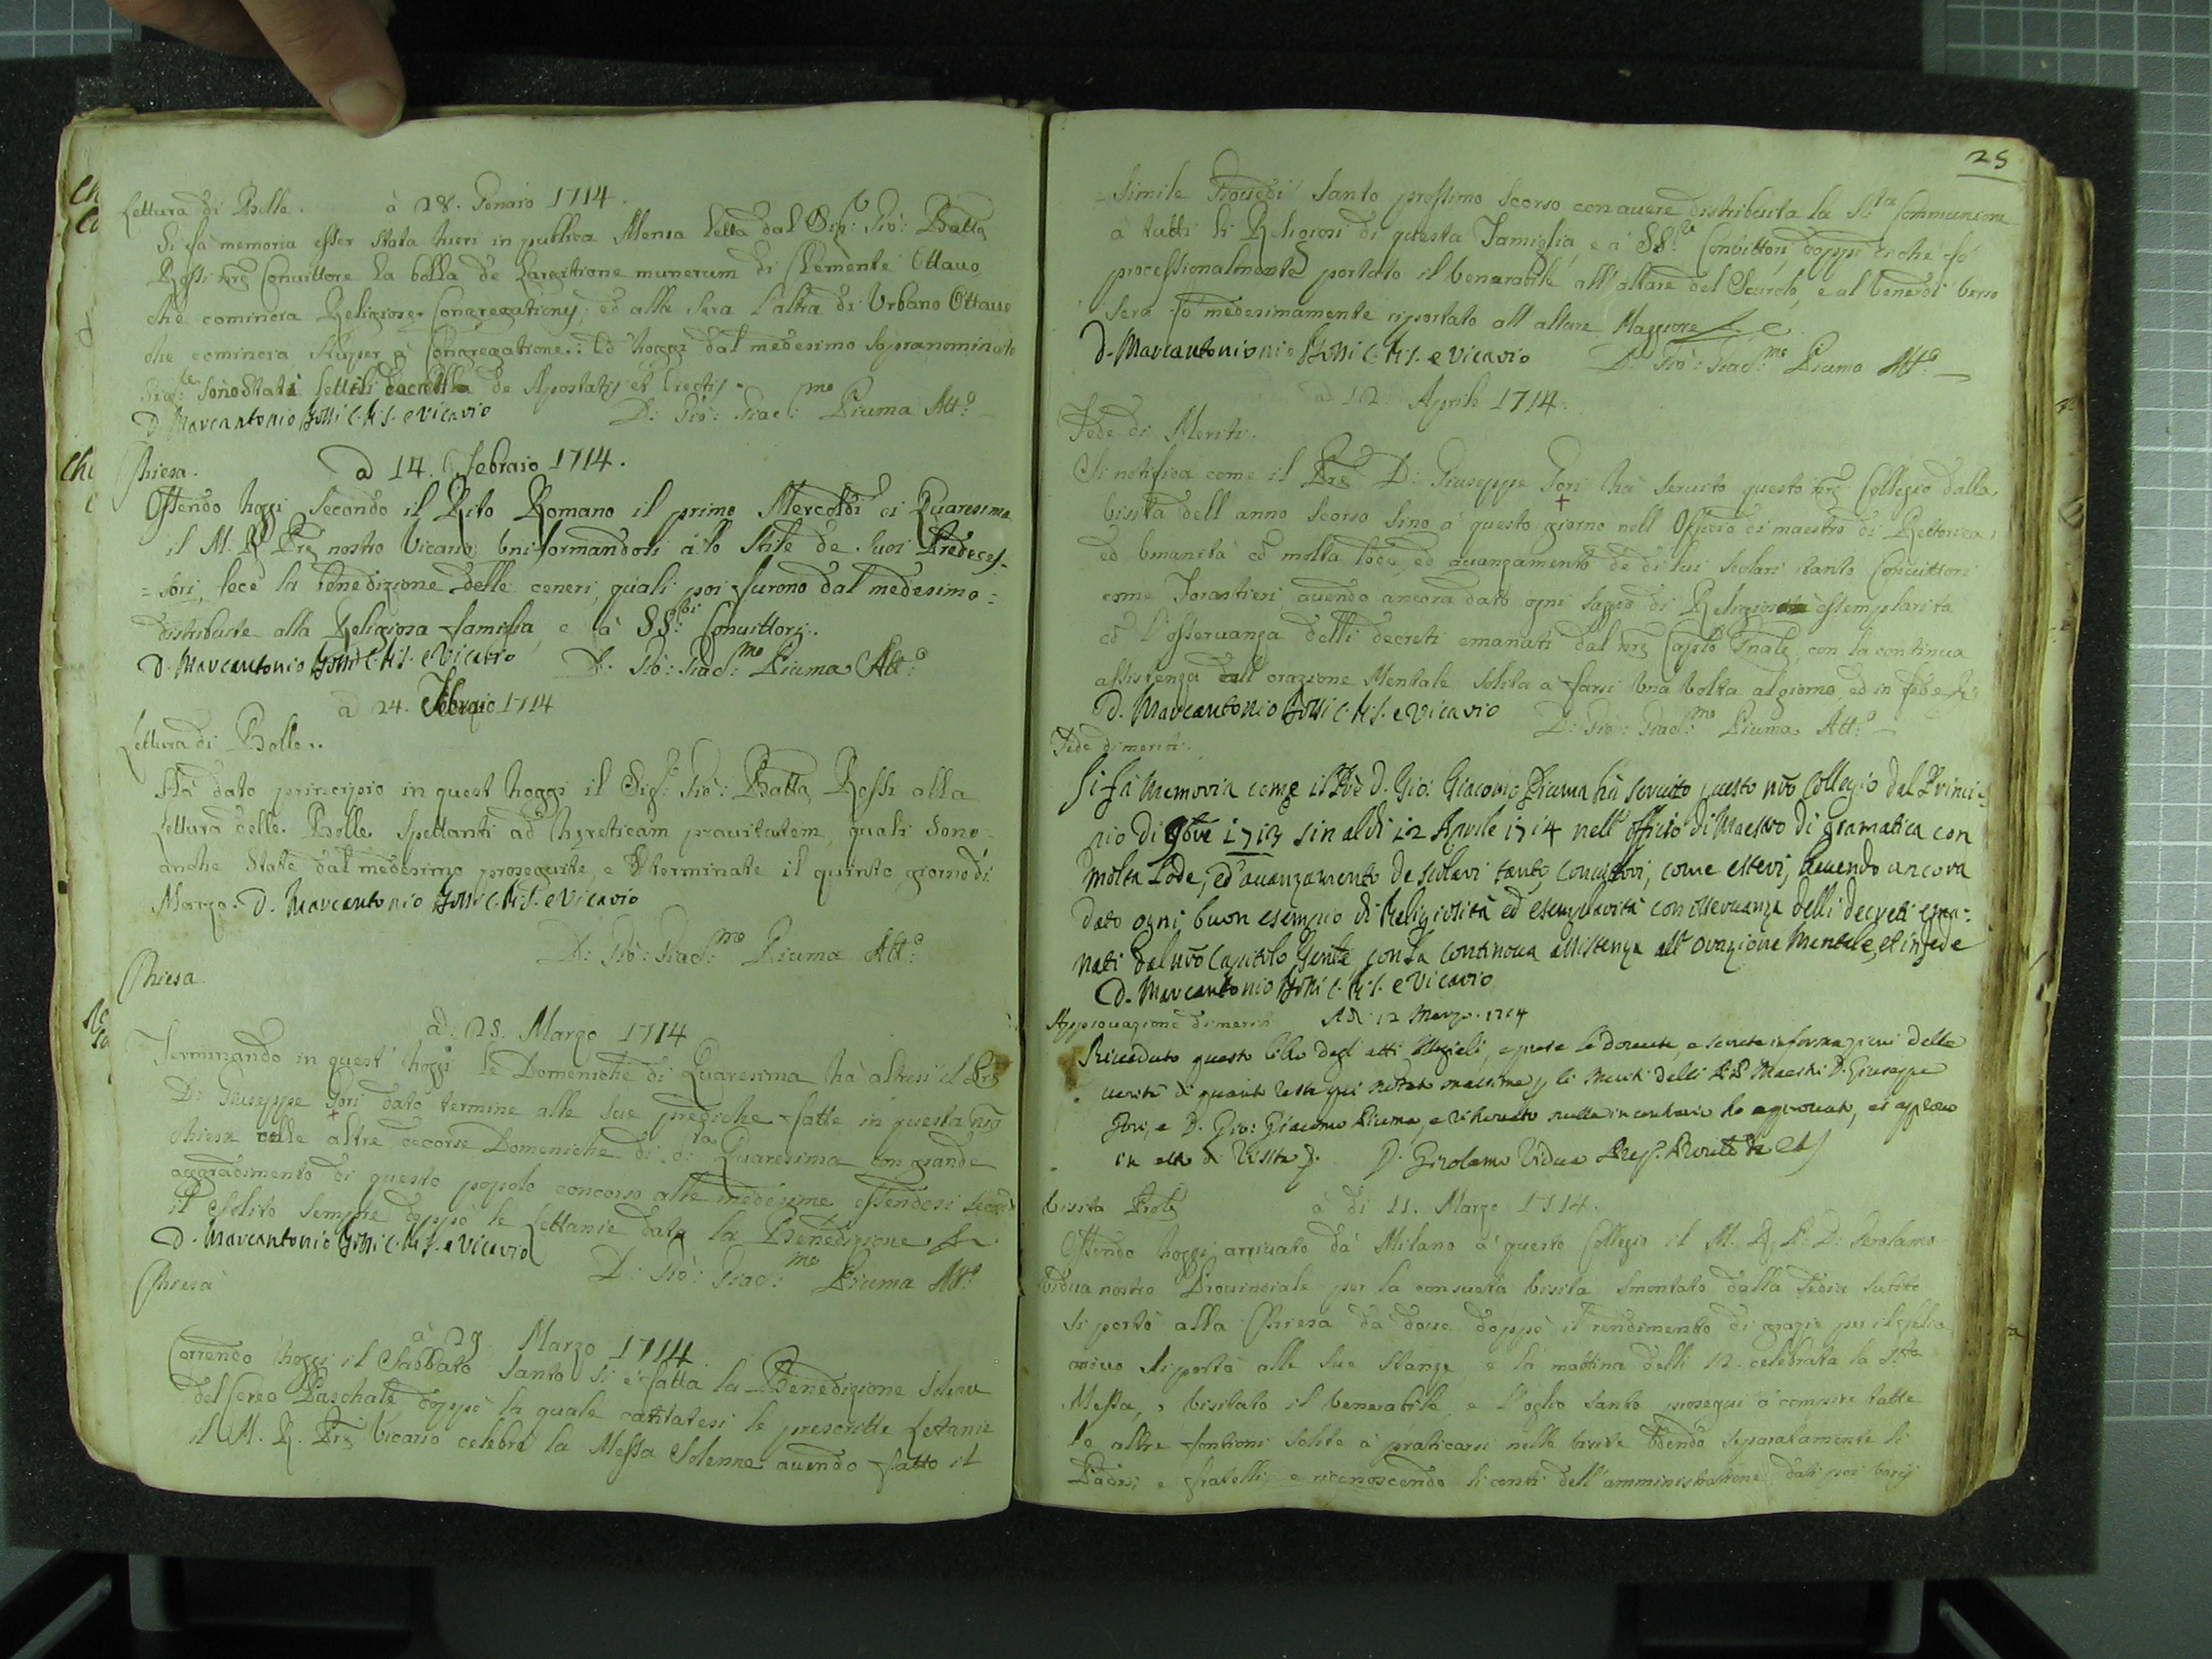 Lettura di Bolle. à 28. Genaio 1714.
Si fà memoria esser stata hieri in publica Mensa letta dal Sigr: Gio: Batta
Rossi nrõ Convittore la bolla de Largitione munerum di Clemente Ottavo
che comincia Religiosæ Congregationes, ed alla sera l'altra di Urbano Ottavo
che comincia Nuper à Congregatione: Ed hoggi dal medesimo sopranominato
Sigr: sono stati letti li decreti de Apostatis et Eiectis.
D. Marcantonio Rossi C.R.S. e Vicario D: Gio: Giac:mo Piuma Att:o
Chiesa. a 14. Febraio 1714.
Essendo hoggi secondo il Rito Romano il primo Mercoldì di Quaresima
il M. R. Prẽ nostro Vicario uniformandosi à lo stile de suoi Predeces-
=sori, fece la benedizione delle ceneri, quali poi furono dal medesimo =
distribuite alla Religiosa famiglia, e à SS:ri Convittori.
D. Marcantonio Rossi C.R.S. e Vicario D: Gio: Giac:mo Piuma Att:o
a 24. Febraio 1714
Lettura di Bolle.
Hà dato principio in quest'hoggi il Sigr: Gio: Batta Rossi alla
lettura delle Bolle spettanti ad hæreticam pravitatem, quali sono
anche state dal medesimo proseguite, e terminate il quinto giorno di
Marzo. D. Marcantonio Rossi C.R.S. e Vicario
D: Gio: Giac:mo Piuma Att:o
Chiesa
a: 25. Marzo 1714
Terminando in quest'hoggi le Domeniche di Quaresima hà altresì il Prẽ
D: Giuseppe Gori dato termine alle sue prediche fatte in questa nrã
chiesa nelle altre decorse Domeniche di d:ta Quaresima con grande
aggradimento di questo popolo concorso alle medesime essendosi secondo
il solito sempre doppo le Lettanie data la Benedizione
D. Marcantonio Rossi C.R.S. e Vicario
D: Gio: Giac:mo Piuma Att:o
Chiesa
à Marzo 1714
Correndo hoggi il Sabbato Santo si è fatta la Benedizione solenne
del Cereo Paschale doppo la quale cantatesi le prescritte Letanie
il M. R. Prẽ Vicario celebrò la Messa solenne avendo fatto il
25
=simile Giovedì Santo prossimo scorso con avere distribuita la St:a Communione
à tutti li Religiosi di questa Famiglia, e à SS:ri Convittori, doppo di chè fò
processionalmente portato il Venerabile all'altare del Scurolo, e al Venerdì verso
sera fò medesimamente riportato all'altare Maggiore
D. Marcantonio Rossi C.R.S. e Vicario D: Gio: Giac:mo Piuma Att:o
ad 12. Aprile 1714.
Fede di Meriti.
Si notifica come il Prẽ D: Giuseppe Gori hà servito questo nrõ Collegio dalla
visita dell'anno scorso sino à questo giorno nell'Officio di maestro di Rettorica,
ed Umanità cõ molta lode, ed avanzamento de di lui scolari tanto Convittori
come Forastieri, avendo ancora dato ogni saggio di Religiosa essemplarità
cõ l'osservanza delli decreti emanati dal nrõ Caplo Gnale, con la continua
assistenza all'orazione Mentale solita a farsi una volta al giorno, ed in fede
D. Marcantonio Rossi C.R.S. e Vicario D: Gio: Giac:mo Piuma Att:o
Fede di meriti.
Si fà Memoria come il Prẽ D. Gio: Giacomo Piuma hà servito questo nrõ Collegio dal Princi-
pio di 9bre 1713 sin al dì 12 Aprile 1714 nell'officio di Maestro di gramatica con
molta lode, ed avanzamento de scolari tanto convittori, come esteri, havendo ancora
dato ogni buon esempio di Religiosità ed esemplarità con osservanza delli decreti ema:
nati dal nrõ Capitolo Gnale con la continova assistenza all'orazione Mentale, et in fede
D. Marcantonio Rossi C.R.S. e Vicario
Approvazione di meriti. A dì 12 Marzo 1714
Riveduto questo libro degl'atti Collegiali, e prese le dovute, e secrete informazioni della
verità di quanto resta qui notato massime li meriti delli PP Maestri D. Giuseppe
Gori, e D. Gio: Giacomo Piuma, e ritrovato nulla in contrario ho approvato, ed approvo
in atto di Visita. D. Girolamo Vidua Prep. Provle
Visita Prole à di 11. Marzo 1714.
Essendo hoggi arrivato da Milano à questo Collegio il M. R. P. D: Gerolamo
Vidua nostro Provinciale per la consueta visita smontato dalla sedia subito
si portò alla Chiesa da dove doppo il rendimento di grazie per il felice
arrivo si portò alle sue stanze, e la mattina delli 12. celebrata la S.ta
Messa, e visitato il Venerabile, e l'oglio santo proseguì à compire tutte
le altre fontioni solite à praticarsi nelle visite udendo separatamente li
Padri, e fratelli, e riconoscendo li conti dell'amministratione, dati poi varij